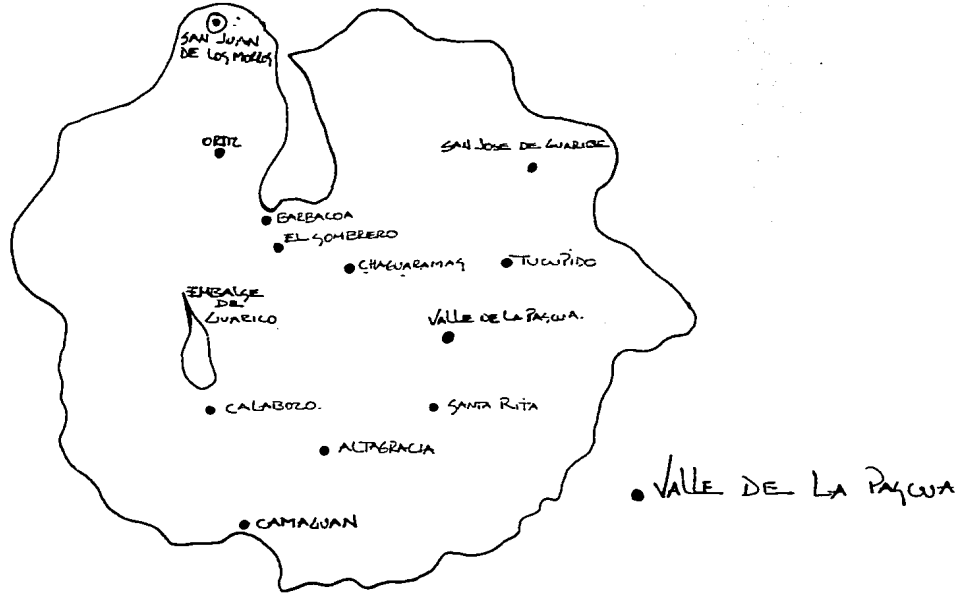 SAN JUAN
DE LOS MORROS
ORTIZ
SAN JOSE DE GUARIBE
BARBACOA
EL SOMBRERO
CHAGUARAMAS
TUCUPIDO
EMBALSE
DE
GUARICO
VALLE DE LA PASCUA.
CALABOZO.
SANTA RITA
ALTAGRACIA
VALLE DE LA PASCUA
CAMAGUAN